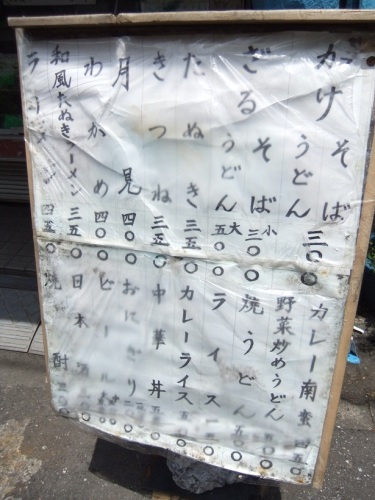 かけそば
うどん 三〇〇
ざるそば 小 三〇〇
うどん 大 五〇〇
たぬき 三五〇
きつね 三五〇
月見 四〇〇
わかめ 四〇〇
和風たぬきラーメン 三五〇
カレー南蛮 四五〇
野菜炒めうどん
焼うどん
ライス
カレーライス
中華丼
おにぎり
ビール
日本酒
焼酎